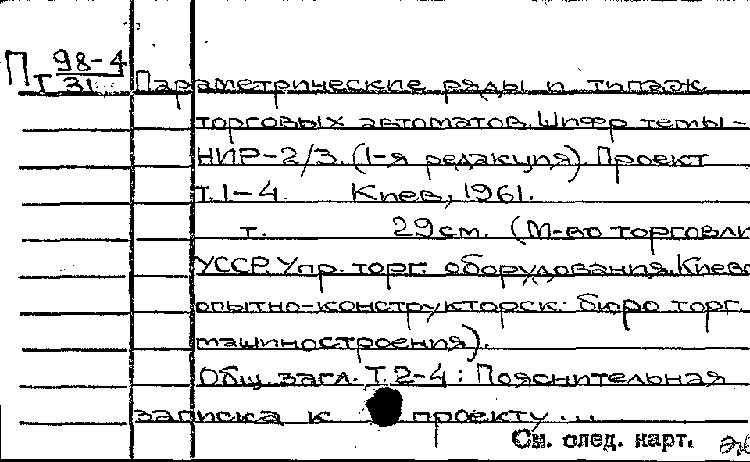 П 98-4
Т 31
Параметрические ряды и типаж
торговых автоматов. Шифр темы -
НИР-2/3. (1-я редакция). Проект
Т.1-4 Киев, 1961.
т. 29 см. (М-во торговли
УССР. Упр. торг. оборудования. Киевс
опытно-конструкторск. бюро торг.
машиностроения).
Общ. загл. Т. 2-4 : Пояснительная
записка к проекту...
См. след. карт.